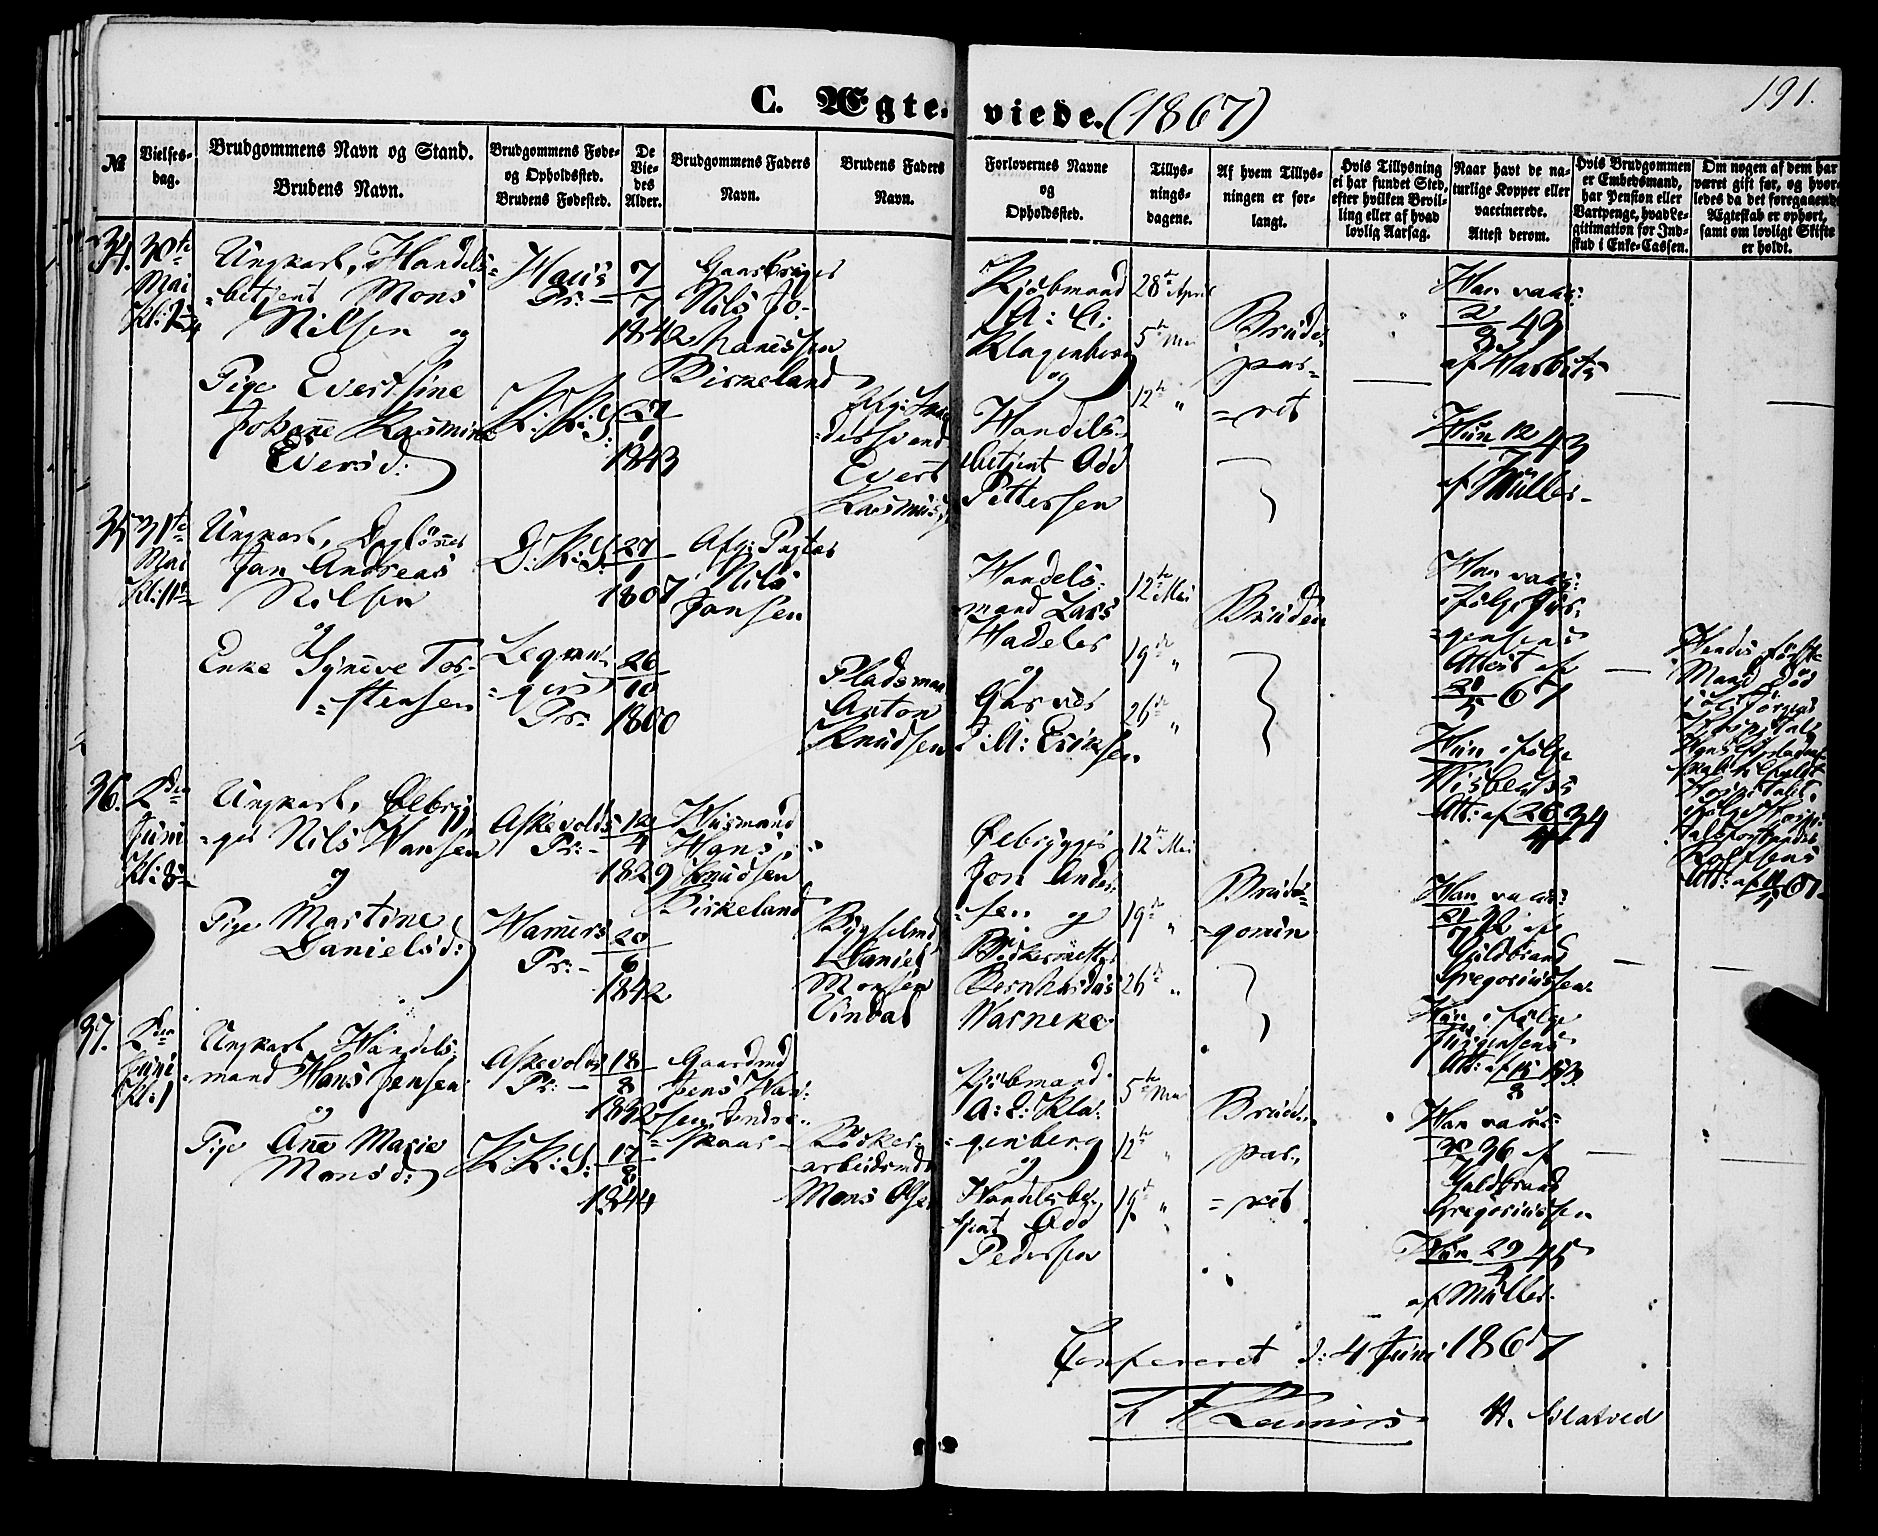 C. Ægte-viede. (1867)
191.
№
Vielses-
dag.
Brudgommens Navn og Stand.
Brudens Navn.
Brudgommens Føde-
og Opholdssted.
Brudens Fødested.
De
Vie-
des
Alder.
Brudgommens Faders
Navn.
Brudens Faders
Navn.
Forlovernes Navne
og
Opholdssted.
Tillys-
nings-
dagene.
Af hvem Tillys-
ningen er for-
langt.
Hvis Tillysning
ei har fundet Sted,
efter hvilken Bevil-
ling eller af hvad
lovlig Aarsag.
Naar havt de na-
turlige Kopper eller
vaccinerede.
Attest derom.
Hvis Brudgommen
er Embedsmand,
har Pension eller
Vartpenge, hvad Le-
gitimation for Ind-
skud i Enke-Cassen.
Om nogen af dem har
været gift før, og hvor-
ledes da det foregaaende
Ægteskab er ophørt,
samt om lovligt Skifte
er holdt.
34.
30te
Mai
Ungkarl, Handels-
=betjent Mons
Nilsen og
Pige Evertsine
Johanne Rasmine
Eversd:
Haus
Pr:-
K:K:S:
7
7
1842
27
1
1843
Gaardbruger
Nils Jo-
hannessen
Birkeland
Evert
Rasmuss.
Kjøbmand
A: E:
Klagenberg
og
Handels-
betjent Odd
Pettersen
28de April
5te Mai
12te "
Brude-
par-
=ret
Han vacc:
2/9 43
af Harbitz
Hun 12/7 43
af Müller-
35
31te
Mai
Kl: 11
Ungkarl, Dagløner
Jan Andreas
Nilsen
og
Enke Synneve Tor-
=stensen
D:K:S:
Leqvan-
=ger
Pr:
27
1
1807
26
10
1800
Afg: Nils
Jansen
Pladsman
Anton
Knudsen
Handels-
mand Lars
Hadeler
og
Garver
J: M: Eriksen
12te Mai
19de "
26de "
Bruden
Han vacc:
ifølge Jür-
=gensens
Attest af
28/5 67
Hun ifølge
Att: af 26/4 34
Hendes første
Mand død
36.
2den
Juni
Kl: 8
Ungkarl, Ølbryg-
=ger Nils Hansen
og
Pige Martine
Danielsd:
Askevolds
Pr:-
Hammers
Pr:-
12
4
1829
20
6
1842
Husmand
Hans
Knudsen
Birkeland
Daniel
Monsen
Vindal
Ølbrygger
Jon Ander-
=sen og
Bødkermester
Bernhardus
Warneke
12te Mai
19de "
26de "
Brud-
=gomen
Han vacc:
Guldbrand
Gregoriussen
Hun ifølge
Jürgensens
Att: af 15/8 53.
37.
2den
Juni
Kl: 1
Ungkarl Handels-
mand Hans Jensen
og
Pige Anne Marie
Monsd:
Askevolds
Pr: -
K:K:S:
18
8
1832
17
8
1844
Gaardmd
Jens Han-
sen Indre-
=skaar
Bødker-
arbeidsmd
Mons Olsen
Kjøbmand
A: E: Kla-
genberg
og
Handelsbe-
tjent Odd
Pedersen
5te Mai
12te "
19de "
Brude-
par-
=ret
Han vacc:
36 af
Guldbrand
Gregoriussen
Hun 29/4 45
af Müller.
Confereret d: 4 Juni 1867